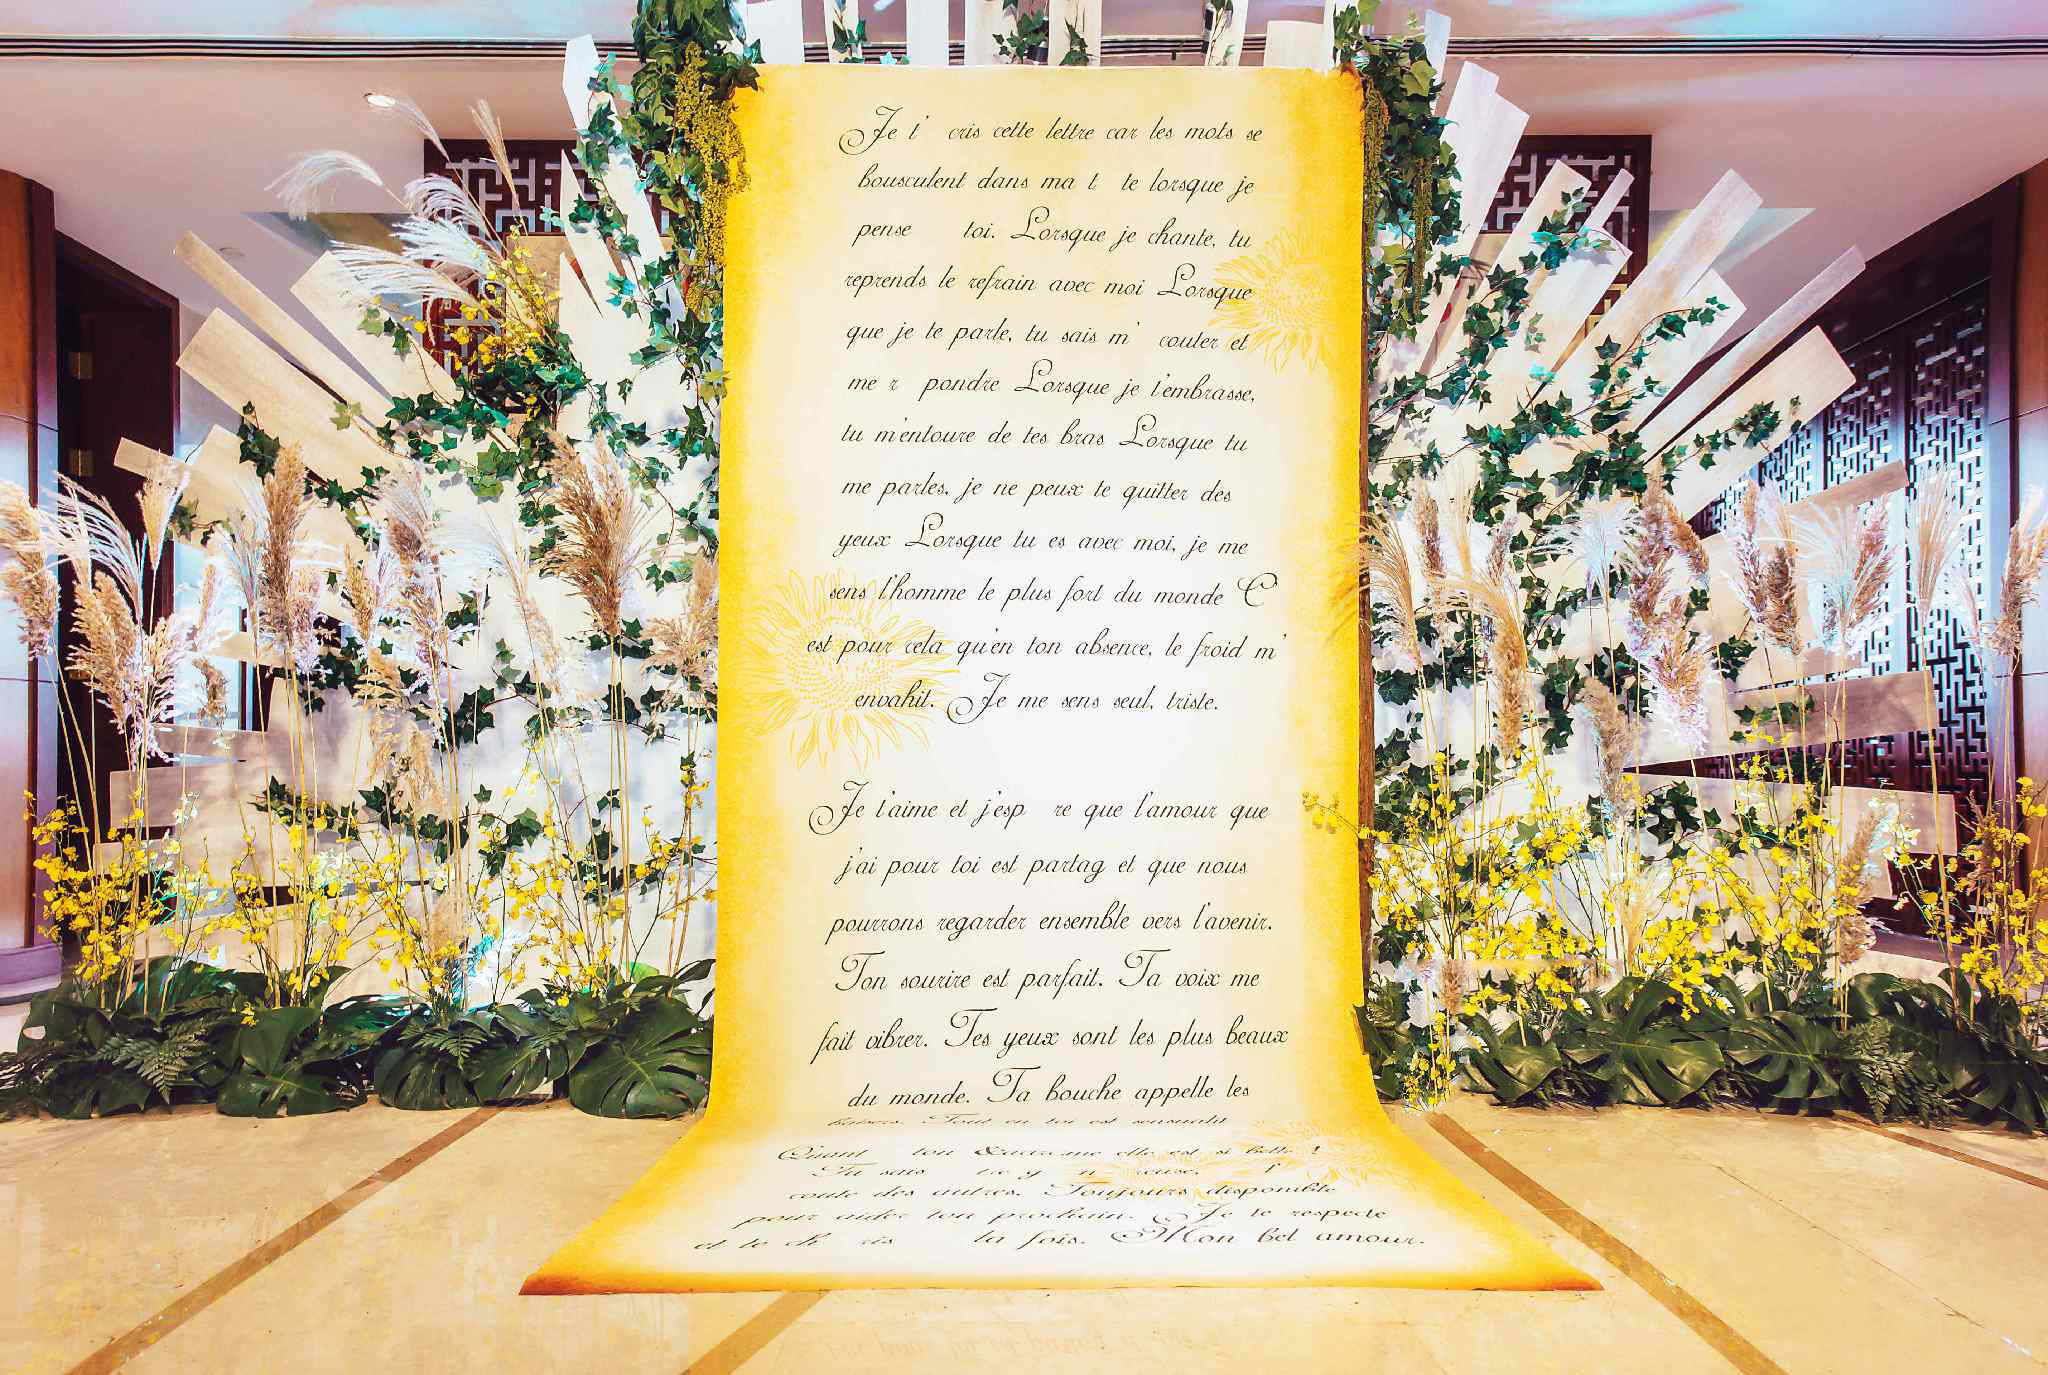 Je t' cris cette lettre car les mots se
bousculent dans ma t te lorsque je
pense toi. Lorsque je chante, tu
reprends le refrain avec moi Lorsque
que je te parle, tu sais m' couter et
me r pondre Lorsque je t'embrasse,
tu m'entoure de tes bras Lorsque tu
me parles, je ne peux te quitter des
yeux Lorsque tu es avec moi, je me
sens l'homme le plus fort du monde C'
est pour cela qu'en ton absence, le froid m'
envahit. Je me sens seul, triste.
Je t'aime et j'esp re que l'amour que
j'ai pour toi est partag et que nous
pourrons regarder ensemble vers l'avenir.
Ton sourire est parfait. Ta voix me
fait vibrer. Tes yeux sont les plus beaux
du monde. Ta bouche appelle les
baisers. Tout en toi est sensualit
Quant ton me elle est si belle !
Tu sais tre g n reuse, l'
coute des autres. Toujours disponible
pour aider ton prochain. Je te respecte
et te ch ris la fois. Mon bel amour.